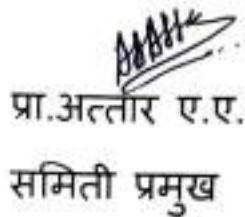 प्रा.अत्तार ए.ए.
समिती प्रमुख